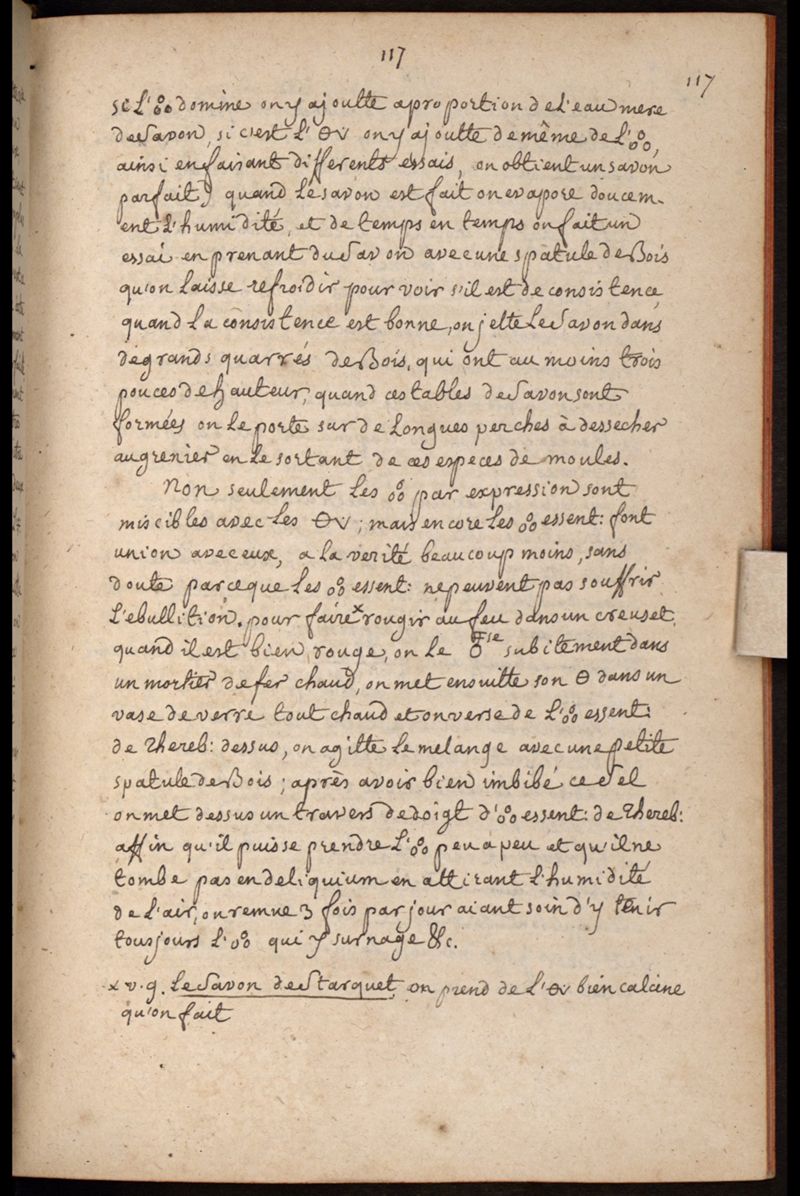 117
117
si l'🝆 domine on y ajoutte a proportion de l'eau mere
de Savon, si c'est l' 🜔v on y ajoutte de même de l'🝆,
ainsi en faisant differents essais, on obtient un savon
parfait) quand le savon est fait on evapore doucem-
ent l'humidité, et de temps en temps on fait un
essai en prenant du Savon avec une spatule de Bois
qu'on laisse refroidir pour voir s'il est de consistence,
quand la consistence est bonne, on jette le Savon dans
de grands quarrés de Bois, qui ont au moins trois
pouces de hauteur, quand ces tables de Savon sont
formées on le porte sur de longues perches à dessecher
au grenier en le sortant de ces especes de moules.
Non seulement les 🝆 par expression sont
miscibles avec les 🜔v; mais encore les 🝆 essent: font
union avec eux, a la verité beaucoup moins, sans
doute parceque les 🝆 essent: ne peuvent pas souffrir
l'ebullition. pour faire x rougir au feu dans un creuset,
quand il est bien rouge, on le se subitement dans
un mortier de fer chaud, on met ensuitte son 🜔 dans un
vase de verre tout chaud et on verse de l'🝆 essent:
de Thereb: dessus, on agitte le melange avec une petite
spatule de Bois; après avoir bien imbibé ce Sel
on met dessus un travers de doigt d'🝆 essent: de Thereb:
affin qu'il puisse prendre l'🝆 peu a peu et qu'il ne
tombe pas en deliquium en attirant l'humidité
de l'air, on remue 3 fois par jour aiant soin d'y tenir
tousjours l'🝆 qui y surnage &c.
x v.g. Le Savon de Starquet, on prend de l'🜔v bien calciné
qu'on fait